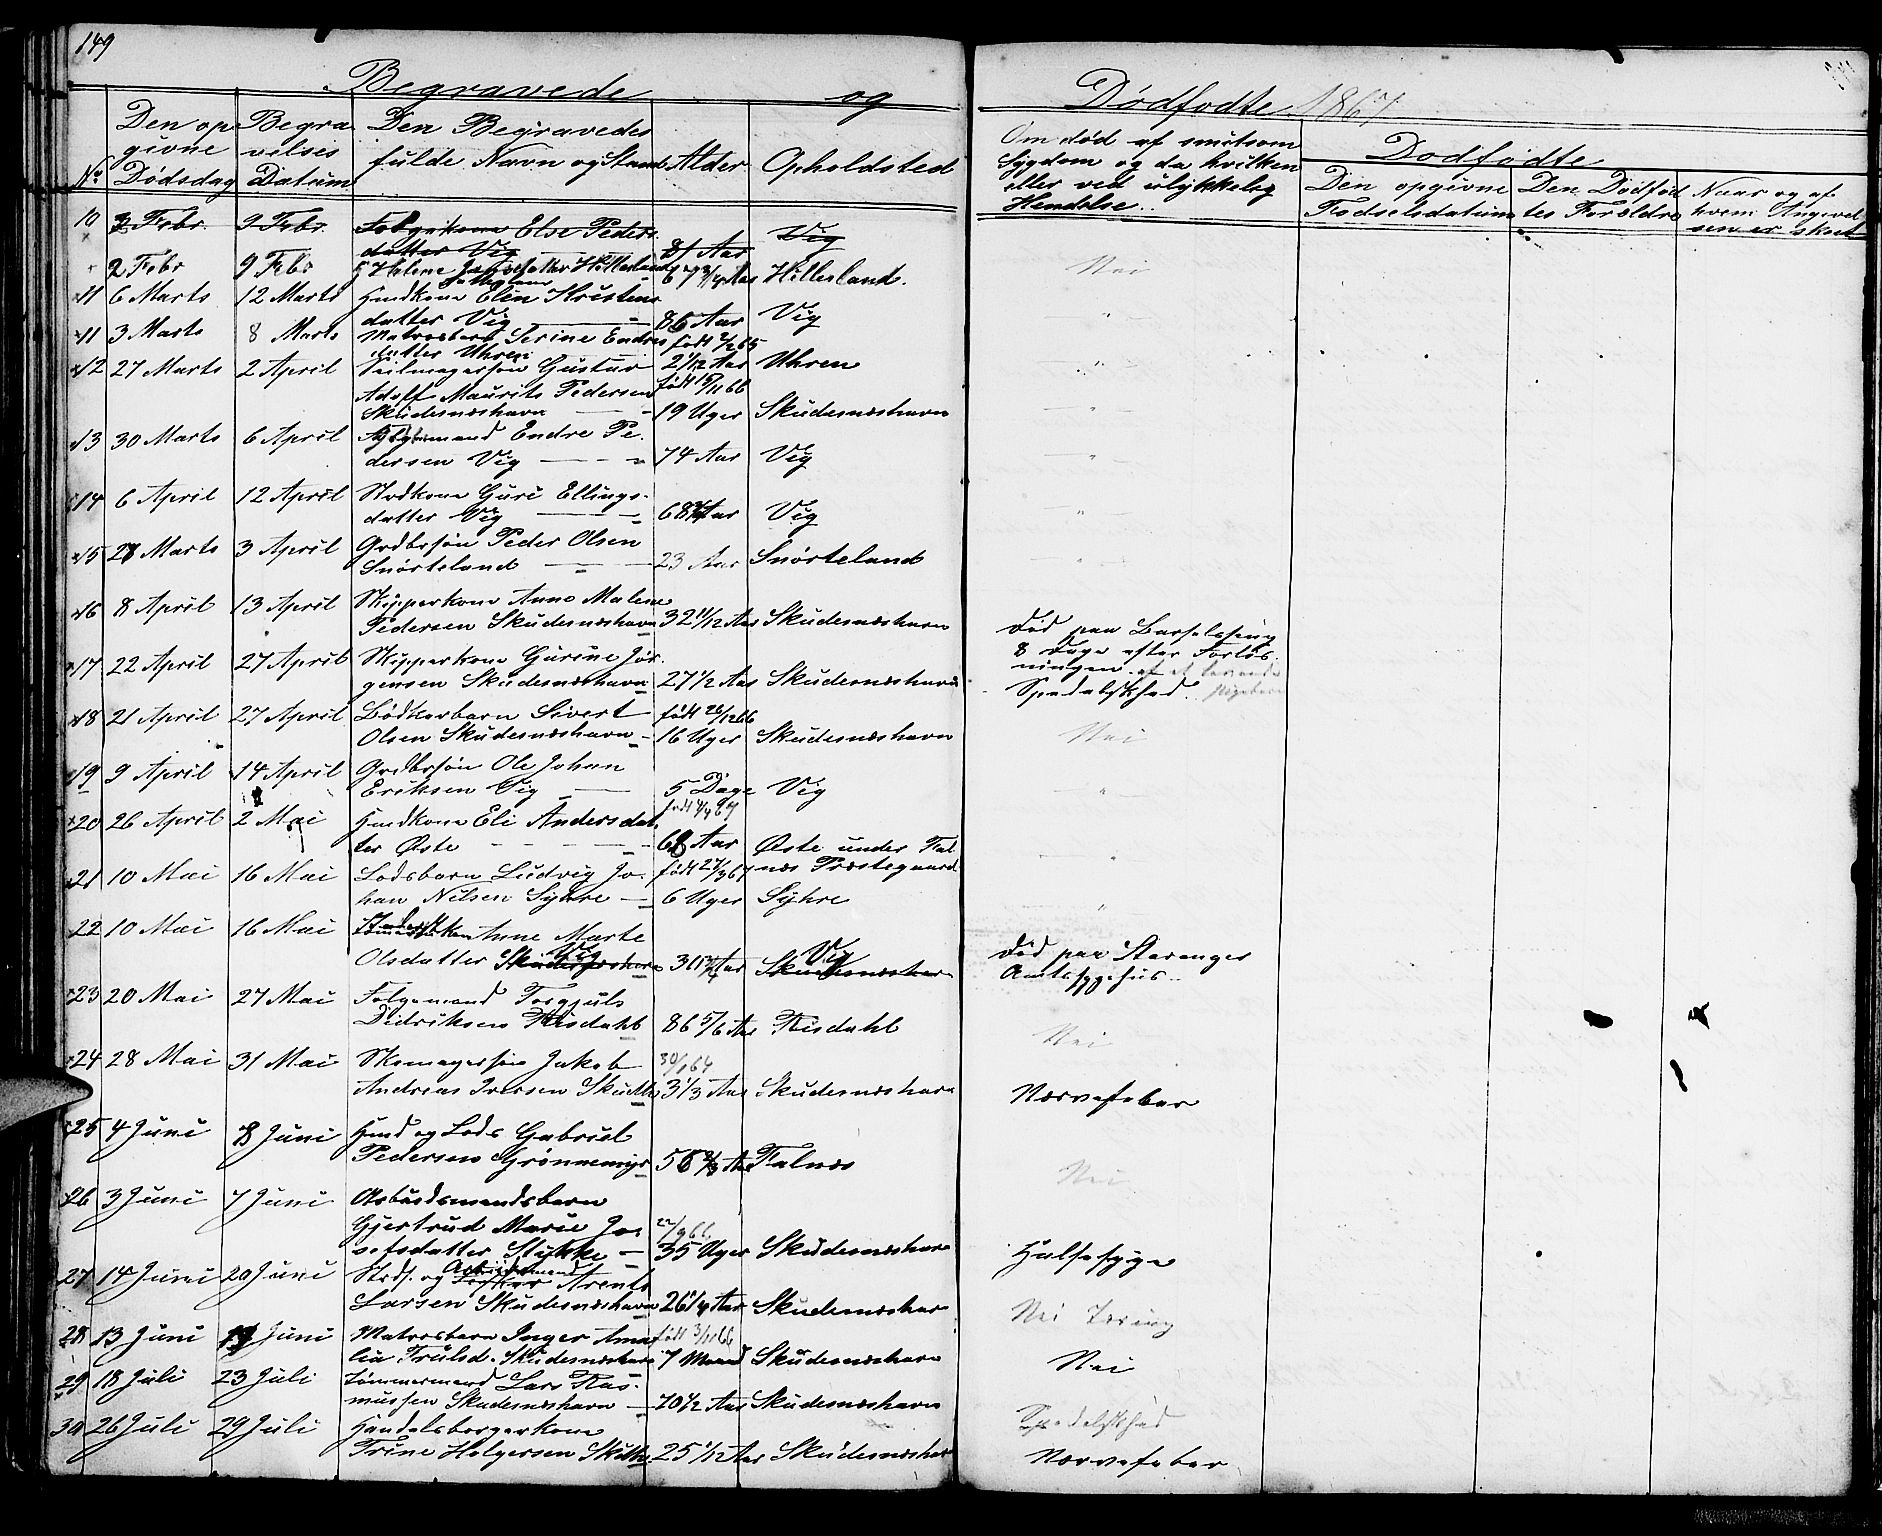 149
Begravede og
Dødfødte 1867
No
Den op
givne
Dødsdag
Begra
velses
Datum
Den Begravedes
fulde Navn og Stand
Alder
Opholdsted
Om død af smitsom
Sygdom og da hvilken
eller ved ulykkelig
Hendelse.
Dødfødte
Den opgivne
Fødselsdatum
Den Dødfød
tes Forældre
Naar og af
hvem Angivel
sen er skeet
10 2 Febr. 9 Febr. Else Peders
datter Vig 81 Aar Vig
2 Febr 9 Febr Helene Hillesland 67 3/4 Aar Hillesland. Nei
11 6 Marts 12 Marts Huskone Elen Kristens
datter Vig 86 Aar Vig "
11 3 Marts 8 Marts Matrosbarn Serine Endres født 2/2 65
datter Uhren 2 1/12 Aar Uhren "
12 27 Marts 2 April Seilmagersøn Gustav født 15/11 66
Adolf Maurits Pedersen
Skudesneshavn 19 Uger Skudesneshavn "
13 30 Marts 6 April Endre Pe-
dersen Vig 74 Aar Vig "
14 6 April 12 April Guri Ellings-
datter Vig 68 Aar Vig "
15 28 Marts 3 April Grdbrsøn Peder Olsen
Snørteland 23 Aar Snørteland "
16 8 April 13 April Skipperkone Anne Malene
Pedersen Skudesneshavn 32 11/12 Aar Skudesneshavn Død paa Barselseng
8 Dage efter Forløs-
ningen
17 22 April 27 April Skipperkone Gurine Jør-
gensen Skudesneshavn 27 1/2 Aar Skudesneshavn Spedalskhed.
18 21 April 27 April Bødkerbarn Sivert født 26/12 66
Olsen Skudesneshavn 16 Uger Skudesneshavn Nei
19 9 April 14 April Grdbrsøn Ole Johan
Eriksen Vig 5 Dage Vig "
født 4/4 67
20 26 April 2 Mai Eli Andersdat-
ter Øste 68 Aar Øste under Fal-
nes Præstegaard "
21 10 Mai 16 Mai Lodsbarn Ludvig Jo- født 27/3 67
han Nilsen Syhre 6 Uger Syhre "
22 10 Mai 16 Mai Anne Marte
Olsdatter Skudesneshavn Vig 30 Aar Skudesneshavn Vig Død paa Stavanger
Amtssygehus.
23 20 Mai 27 Mai Følgemand Torgjuls
Didriksen Risdahl 86 5/6 Aar Risdahl Nei
24 28 Mai 31 Mai Skomagersøn Jakob 30/1 64
Andreas Iversen Skudhn 3 1/3 Aar Skudesneshavn Nervefeber
25 4 Juni 8 Juni Husm og Lods Gabriel
Pedersen Grønnemyr 56 2/3 Aar Falnes Nei
26 3 Juni 7 Juni Arbeidsmandsbarn
Gjertrud Marie Jo- 22/9 66
sefsdatter Stykke 35 Uger Skudesneshavn Halssyge
27 14 Juni 20 Juni Strds. og Arbeidsmand Arent
Larsen Skudesneshavn 26 1/4 Aar Skudesneshavn Nei Tæring
28 13 Juni 19 Juni Matrosbarn Inger Ama født 3/11 66
lia Trulsd. Skudesneshavn 7 Maaned Skudesneshavn Nei
29 18 Juli 23 Juli Tømmermand Lars Ras-
mussen Skudesneshavn 70 1/2 Aar Skudesneshavn Spedalskhed
30 26 Juli 29 Juli Handelsborgerkone
Trine Helgersen Skudhn 25 1/12 Aar Skudesneshavn Nervefeber